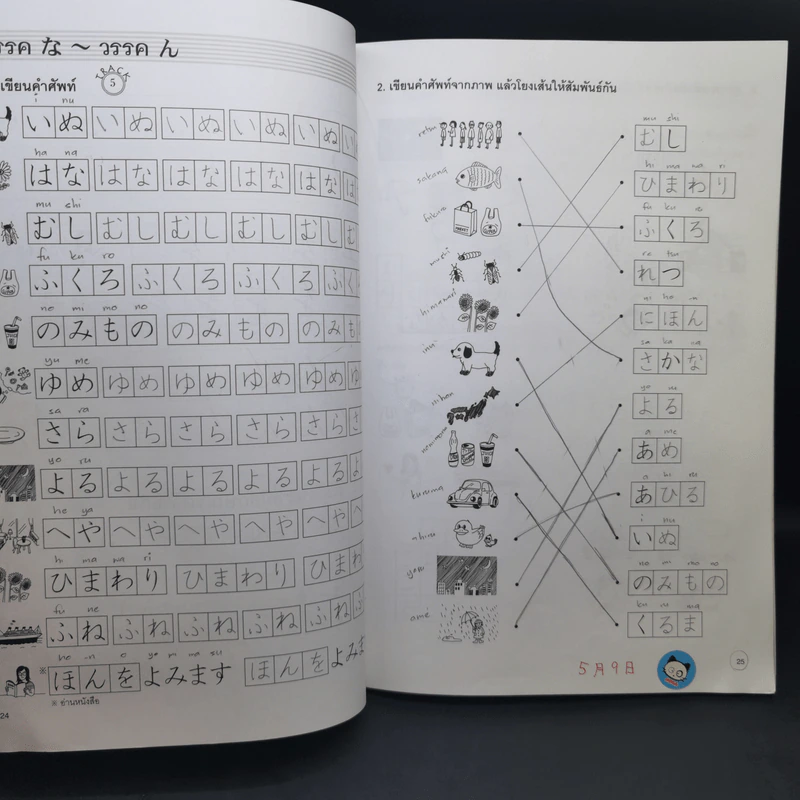 วรรค な ～ วรรค ん
เขียนคำศัพท์
TRACK 5
i nu
いぬ いぬ いぬ いぬ いぬ い
ha na
はな はな はな はな はな は
mu shi
むし むし むし むし むし む
fu ku ro
ふくろ ふくろ ふくろ ふく
no mi mo no
のみもの のみもの のみも
yu me
ゆめ ゆめ ゆめ ゆめ ゆめ ゆ
sa ra
さら さら さら さら さら さ
yo ru
よる よる よる よる よる よ
he ya
へや へや へや へや へや へ
hi ma wa ri
ひまわり ひまわり ひまわ
fu ne
ふね ふね ふね ふね ふね ふ
ho n o yo mi ma su
※ ほんをよみます ほんをよみま
※ อ่านหนังสือ
24
2. เขียนคำศัพท์จากภาพ แล้วโยงเส้นให้สัมพันธ์กัน
mu shi
むし
sakana
hi ma wa ri
ひまわり
fu ku ro
ふくろ
mushi
re tsu
れつ
himawari
ni ho n
にほん
inu
sa ka na
さかな
nihon
yo ru
よる
a me
あめ
kuruma
a hi ru
あひる
ahiru
i nu
いぬ
yoru
no mi mo no
のみもの
ame
ku ru ma
くるま
5月9日
25